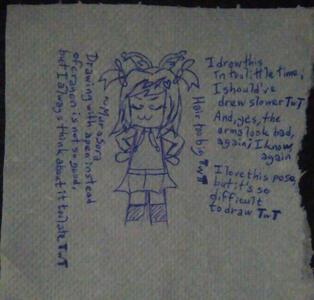 I drew this
in too little time,
I should've
drew slower TwT
And, yes, the
arms look bad,
again; I know,
again
I love this pose,
but it's so
difficult
to draw TwT
Hair to big TwT
~MuraSora
Drawing with a pen instead
of crayon is not so good,
but I always think about it too late TwT